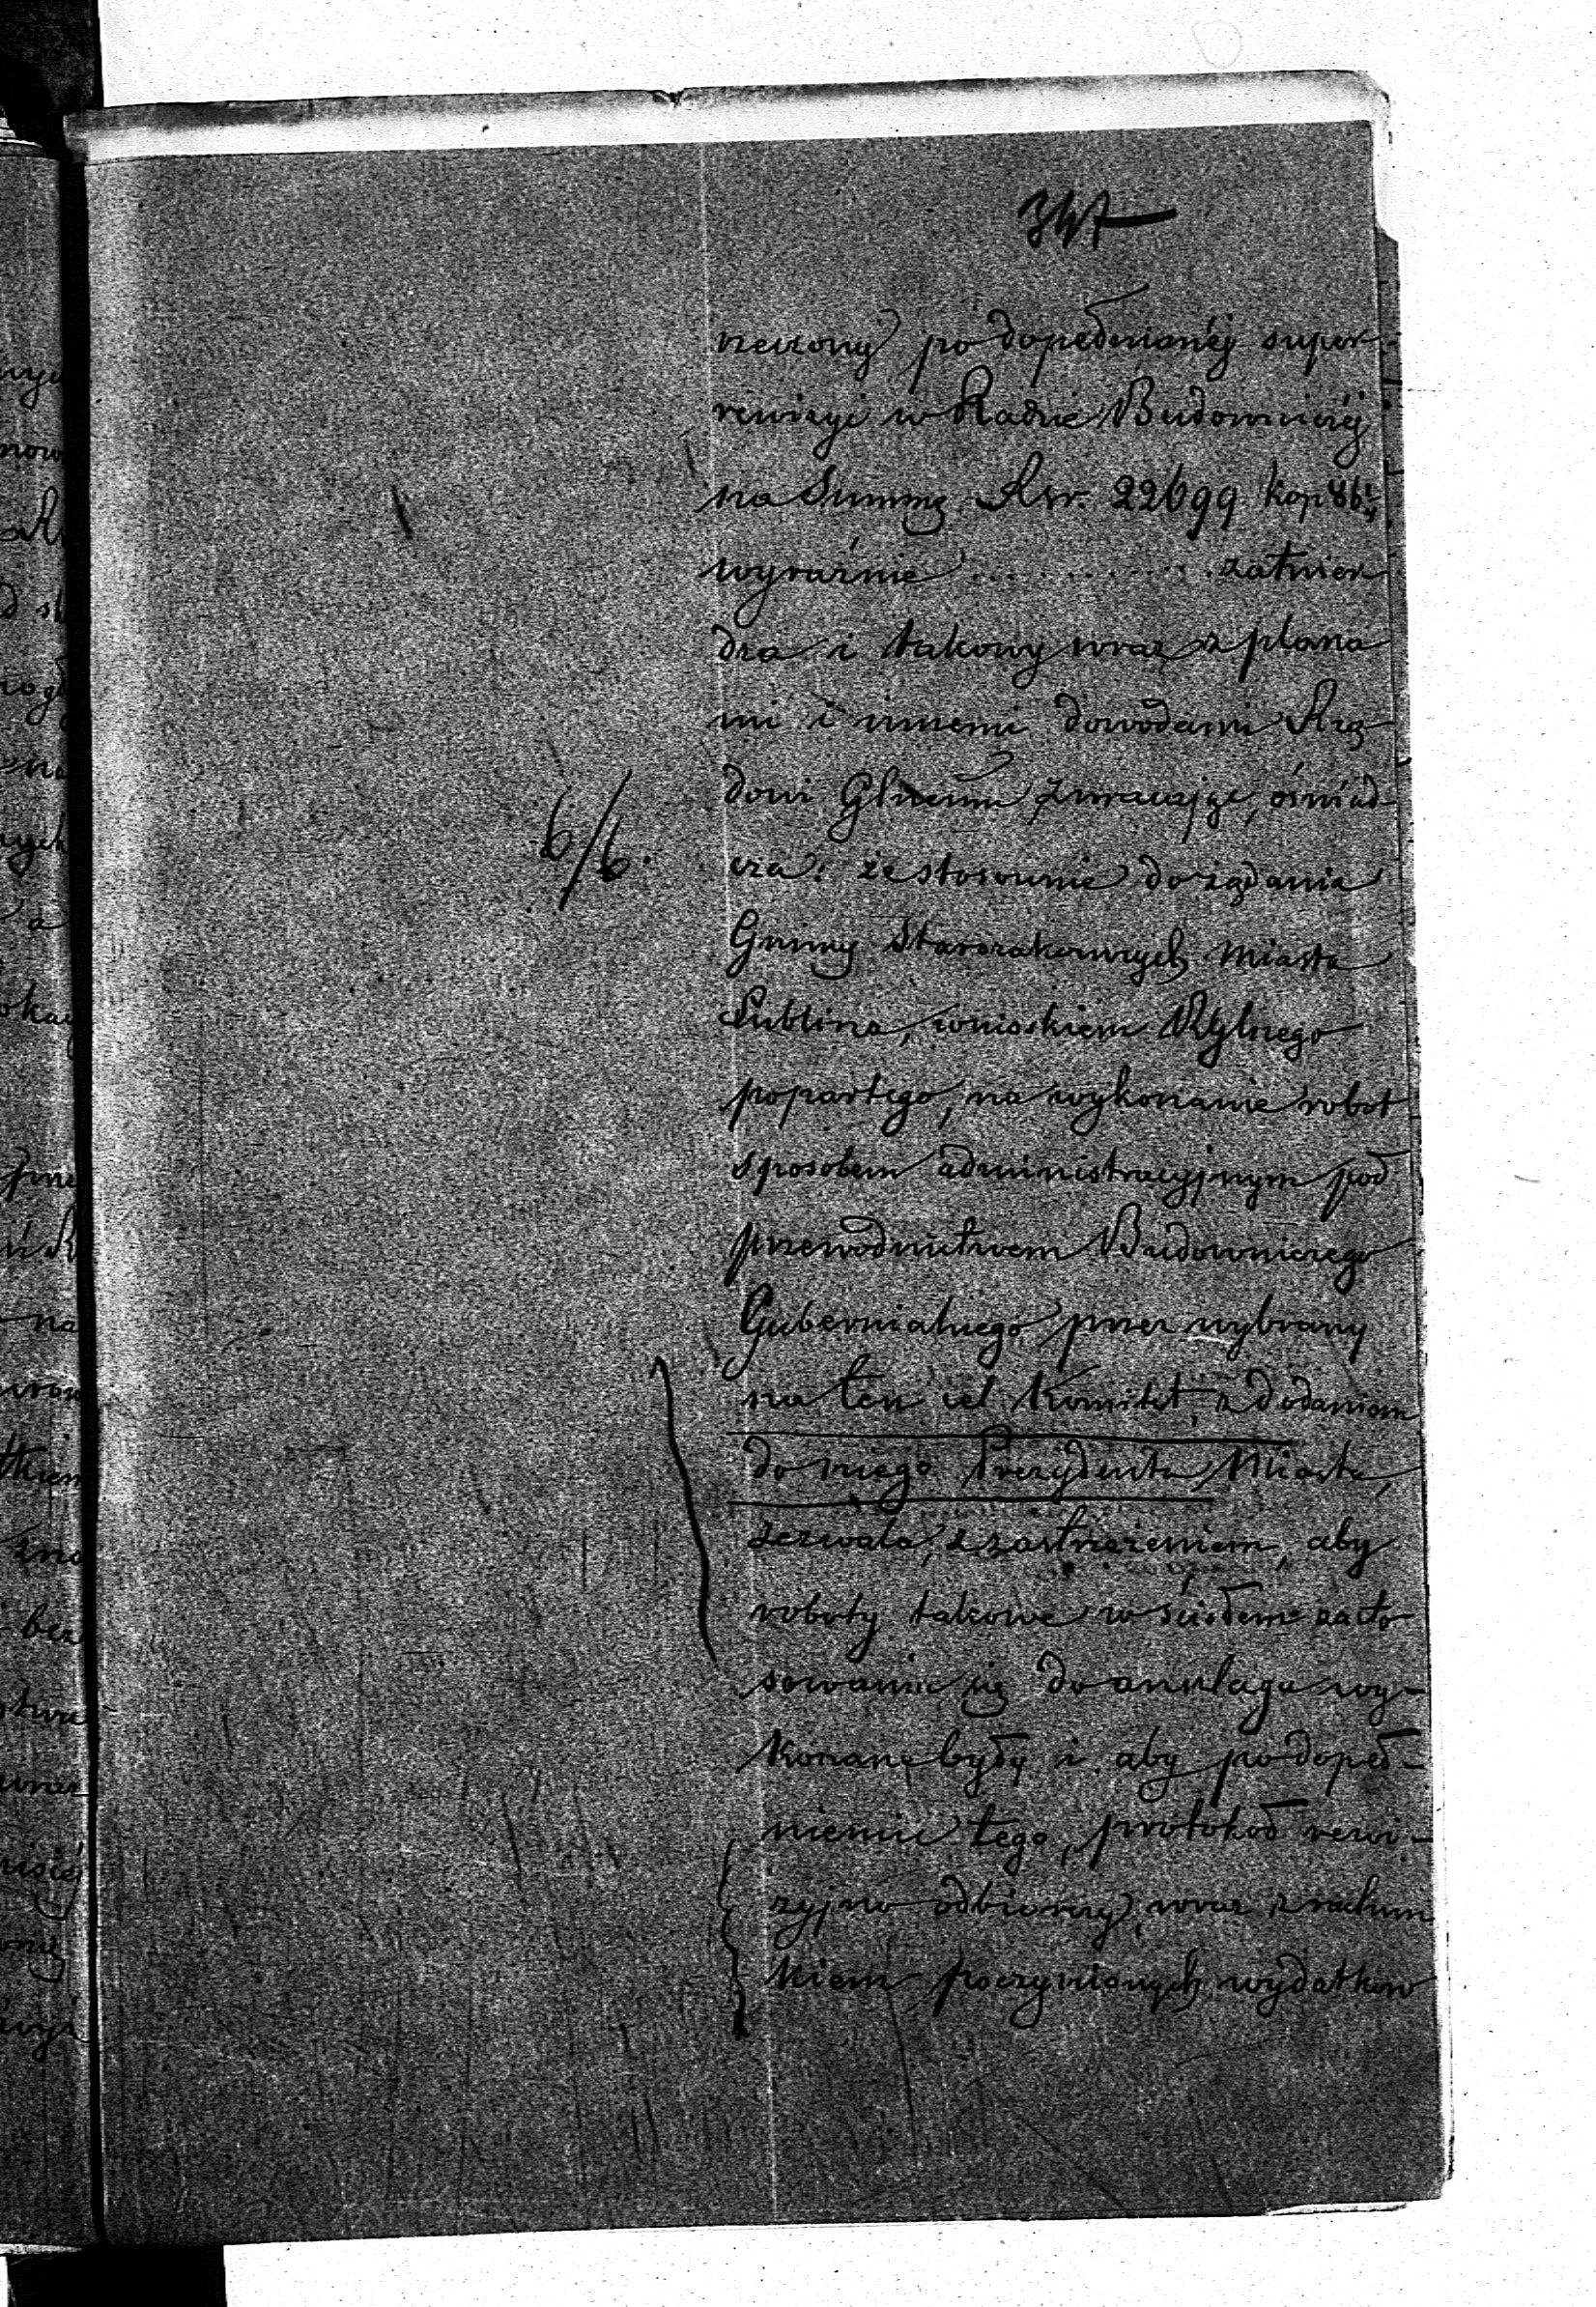 347
rzezony po dopełnionéj super-
rewizyi w Radzie Budowniczéj
na Summę Rsr. 22699 kop 86 1/4
wyraźnie ............. zatwier
dza i takowy wraz z plana
mi i innemi dowodami Rzą-
dowi Glnemu zwracając, oświad-
6/6.
cza: że stosownie do żądania
Gminy Starozakonnych Miasta
Lublina, wnioskiem RGlnego
popartego, na wykonanie robot
sposobem administracyjnym pod
przewodnictwem Budowniczego
Gubernialnego przez wybrany
na ten cel Komitet, z dodaniem
do niego Prezydenta Miasta,
zezwala, z zastrzeżeniem, aby
roboty takowe w ścisłem zasto-
sowaniu się do anszlagu wy-
konane były i aby po dopeł-
nieniu tego, protokoł rewi-
zyjno odbiorczy, wraz z rachun
kiem poczynionych wydatkow